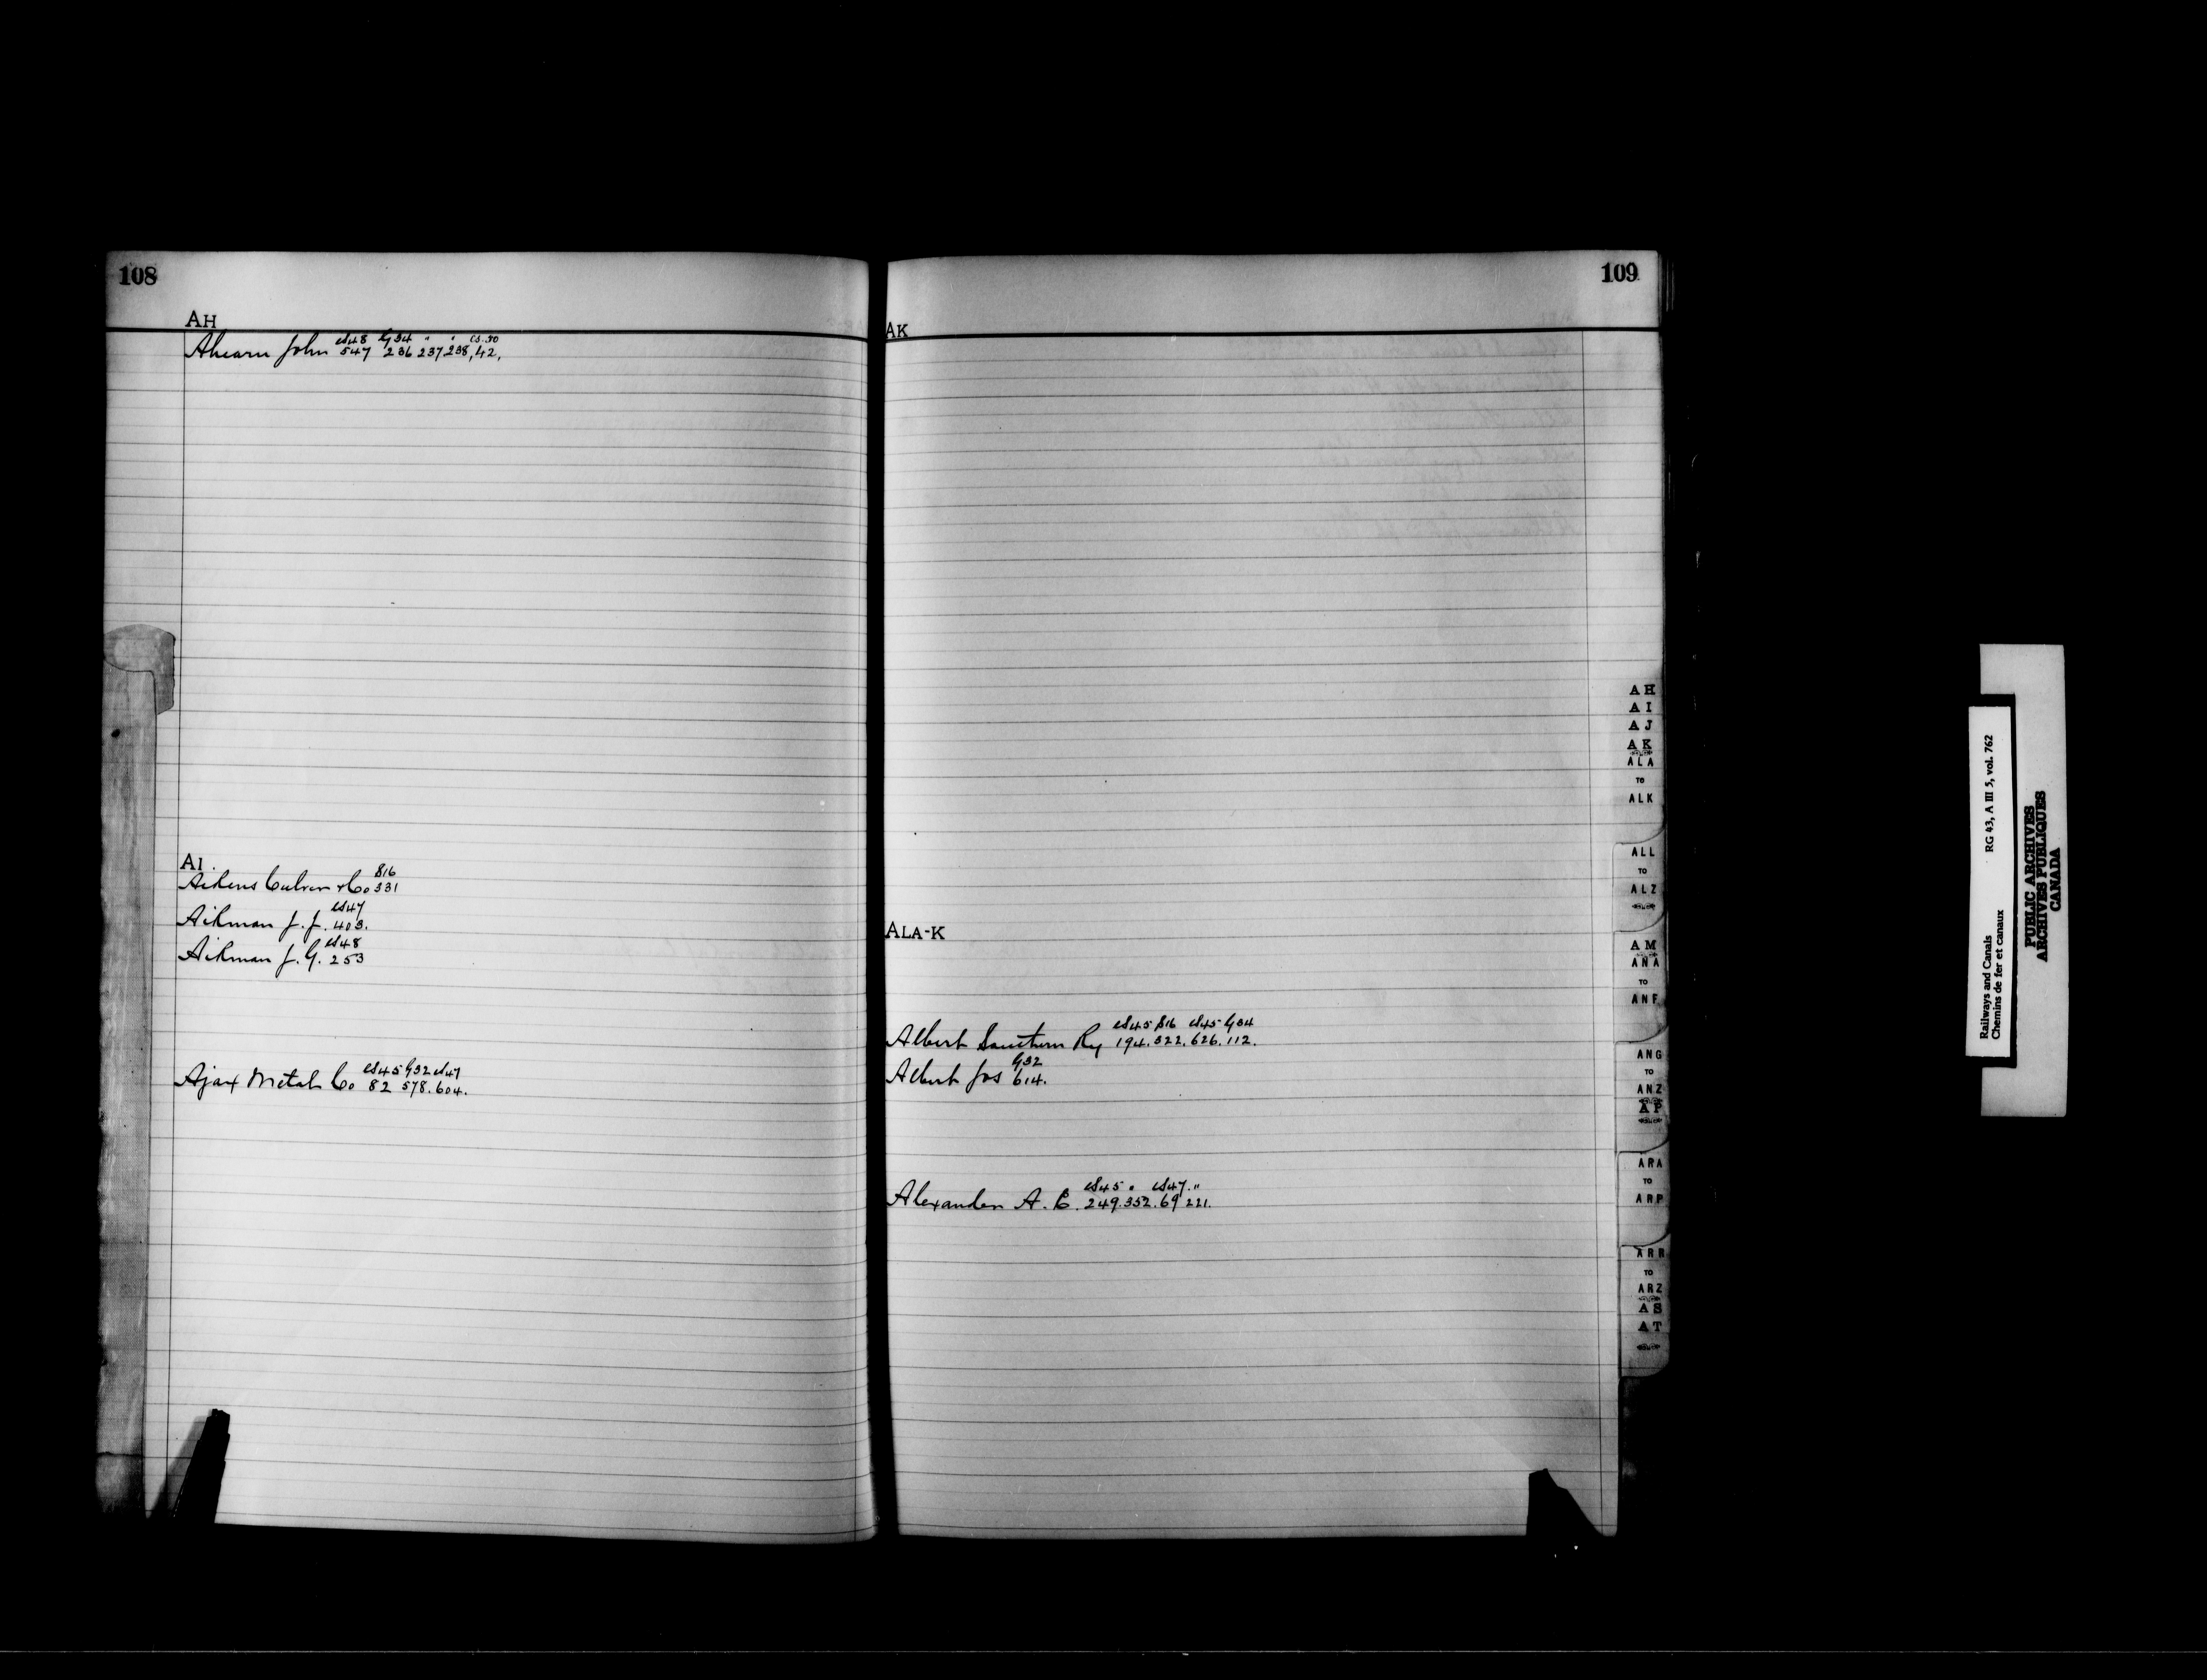 108
AH
cs48 G34 " " cs.50
Ahearn John 547 236 237, 238, 42,
AI.
816
Aikens Culver & Co 331
cs47
Aikman J. J. 403.
cs48
Aikman J. G. 253
cs45 G32 cs47
Ajax Metal Co 82 578. 604.
109
AK
ALA-K
cs45 S16 cs45 G34
Albert Southern Ry 194. 322. 626. 112.
G32
Albert Jos 614.
cs45 " cs47. "
Alexander A. C. 249. 352. 69 221.
AH
AI
AJ
AK
ALA
TO
ALK
ALL
TO
ALZ
AM
ANA
TO
ANF
ANG
TO
ANZ
AP
ARA
TO
ARP
ARR
TO
ARZ
AS
AT
Railways and Canals RG 43, A III 5, vol. 762
Chemins de fer et canaux
PUBLIC ARCHIVES
ARCHIVES PUBLIQUES
CANADA